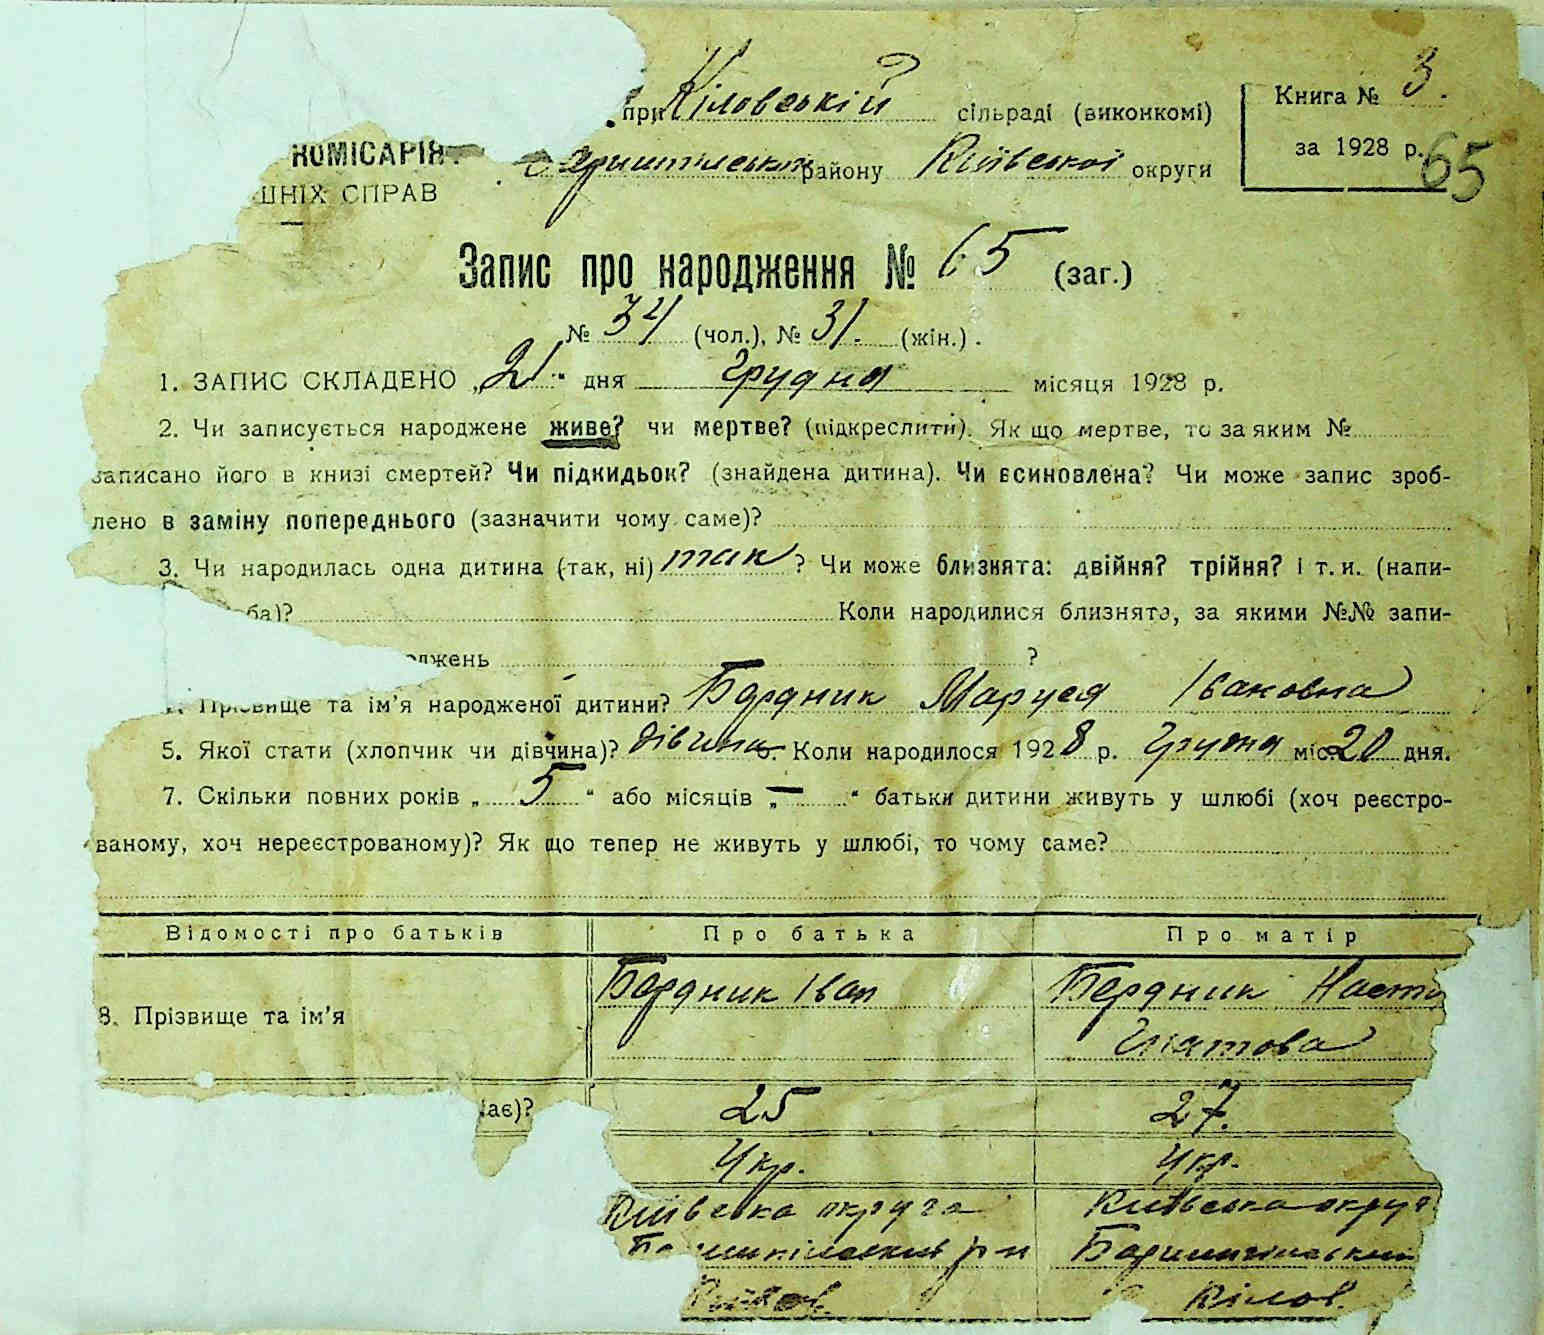 при Кіловській сільраді (виконкомі)
Книга № 3.
КОМІСАРІЯ
району Київської округи
за 1928 р.
65
ШНІХ СПРАВ
Запис про народження № 65 (заг.)
№ 34 (чол.), № 31. (жін.).
1. ЗАПИС СКЛАДЕНО „21“ дня грудня місяця 1928 р.
2. Чи записується народжене живе? чи мертве? (підкреслити). Як що мертве, то за яким №
записано його в книзі смертей? Чи підкидьок? (знайдена дитина). Чи всиновлена? Чи може запис зроб-
лено в заміну попереднього (зазначити чому саме)?
3. Чи народилась одна дитина (так, ні) так? Чи може близнята: двійня? трійня? і т. и. (напи-
ба)? Коли народилися близнята, за якими №№ запи-
джень ?
Прізвище та ім’я народженої дитини? Бардник Маруся Івановна
5. Якої стати (хлопчик чи дівчина)? дівчина 6. Коли народилося 1928 р. грудня міс. 20 дня.
7. Скільки повних років „5“ або місяців „–“ батьки дитини живуть у шлюбі (хоч реєстро-
ваному, хоч нереєстрованому)? Як що тепер не живуть у шлюбі, то чому саме?
Відомості про батьків Про батька Про матір
8. Прізвище та ім’я Бардник Іван Бердник Наст
Гнатова
ає)? 25 27.
Укр. Укр.
Київська округа Київська округ
р-н Баришпільський
Кілов.